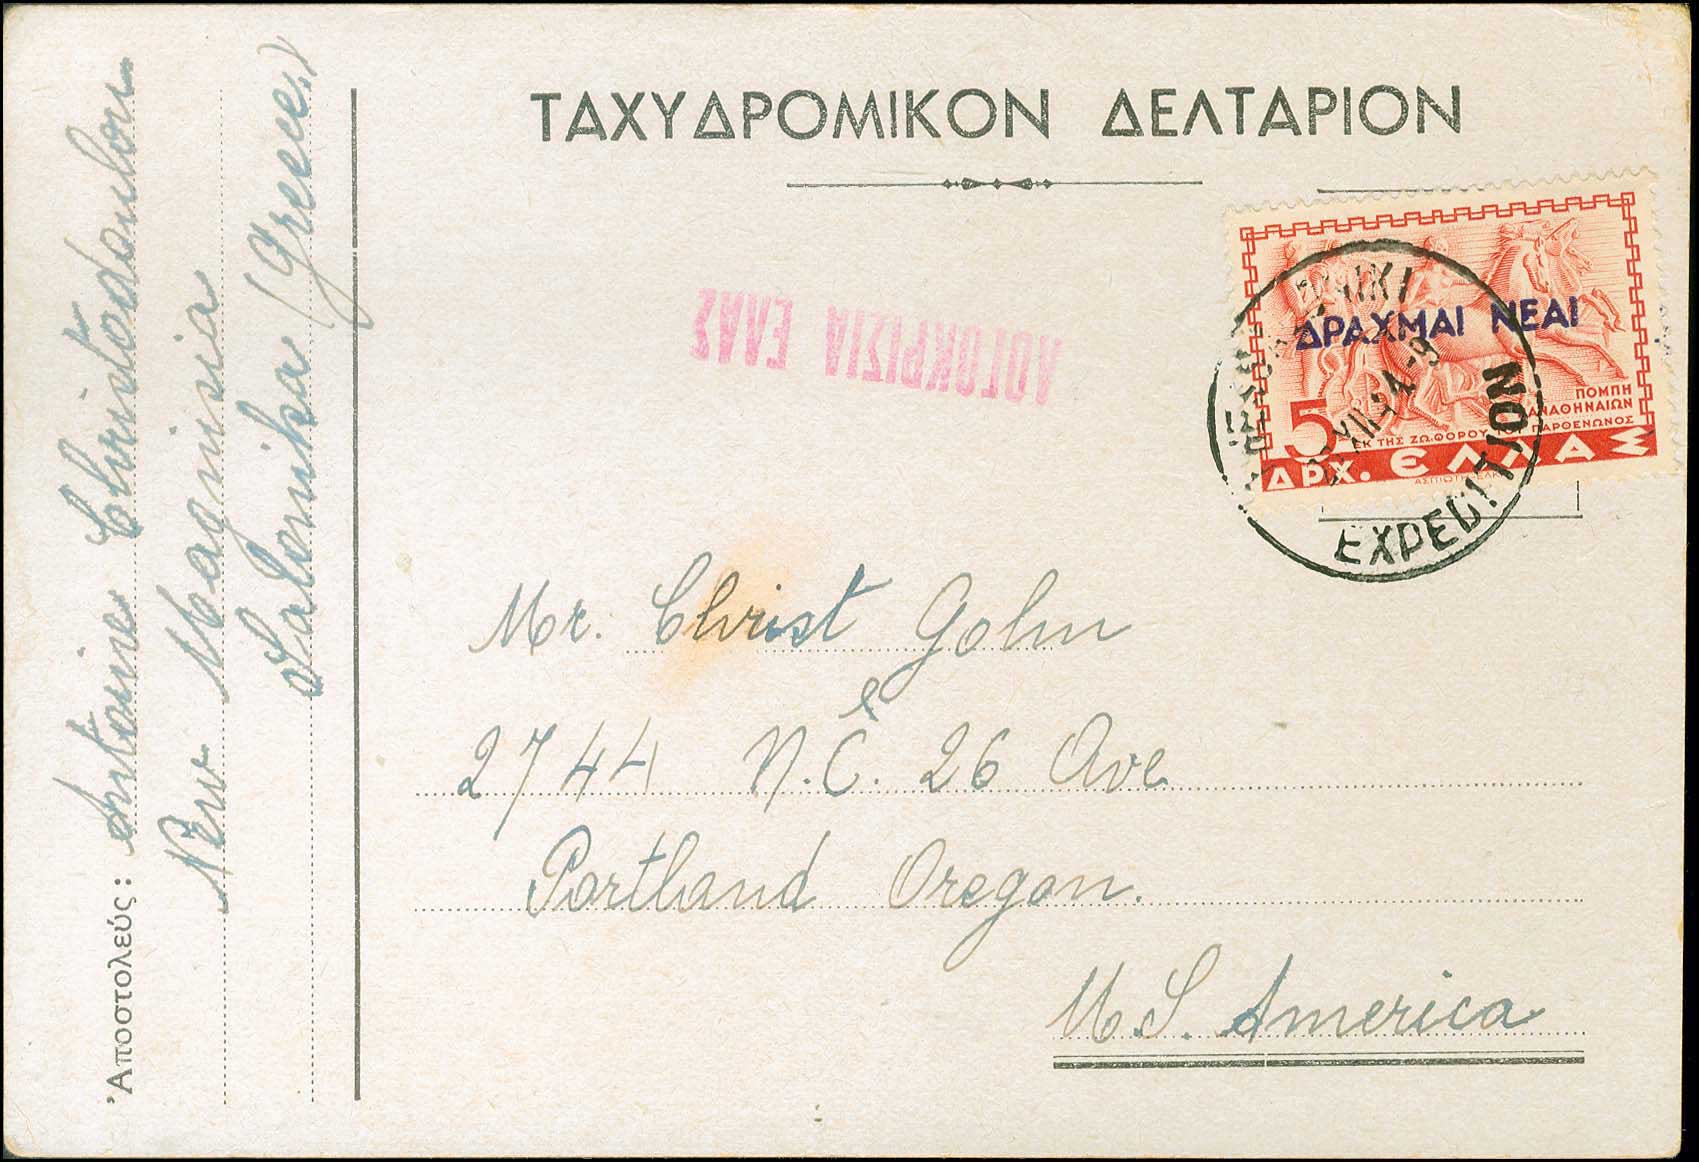 ΤΑΧΥΔΡΟΜΙΚΟΝ ΔΕΛΤΑΡΙΟΝ
ΛΟΓΟΚΡΙΣΙΑ ΕΛΑΣ
ΔΡΑΧΜΑΙ ΝΕΑΙ
ΠΟΜΠΗ
ΠΑΝΑΘΗΝΑΙΩΝ
ΕΚ ΤΗΣ ΖΩΦΟΡΟΥ ΤΟΥ ΠΑΡΘΕΝΩΝΟΣ
5
ΔΡΧ. ΕΛΛΑΣ
EXPEDITION
Mr. Christ Gohn
2744 N.E. 26 Ave
Portland Oregon.
U.S. America
Ἀποστολεύς: Antoine Christodoulou
New Maginsia
Salonika (Greece)